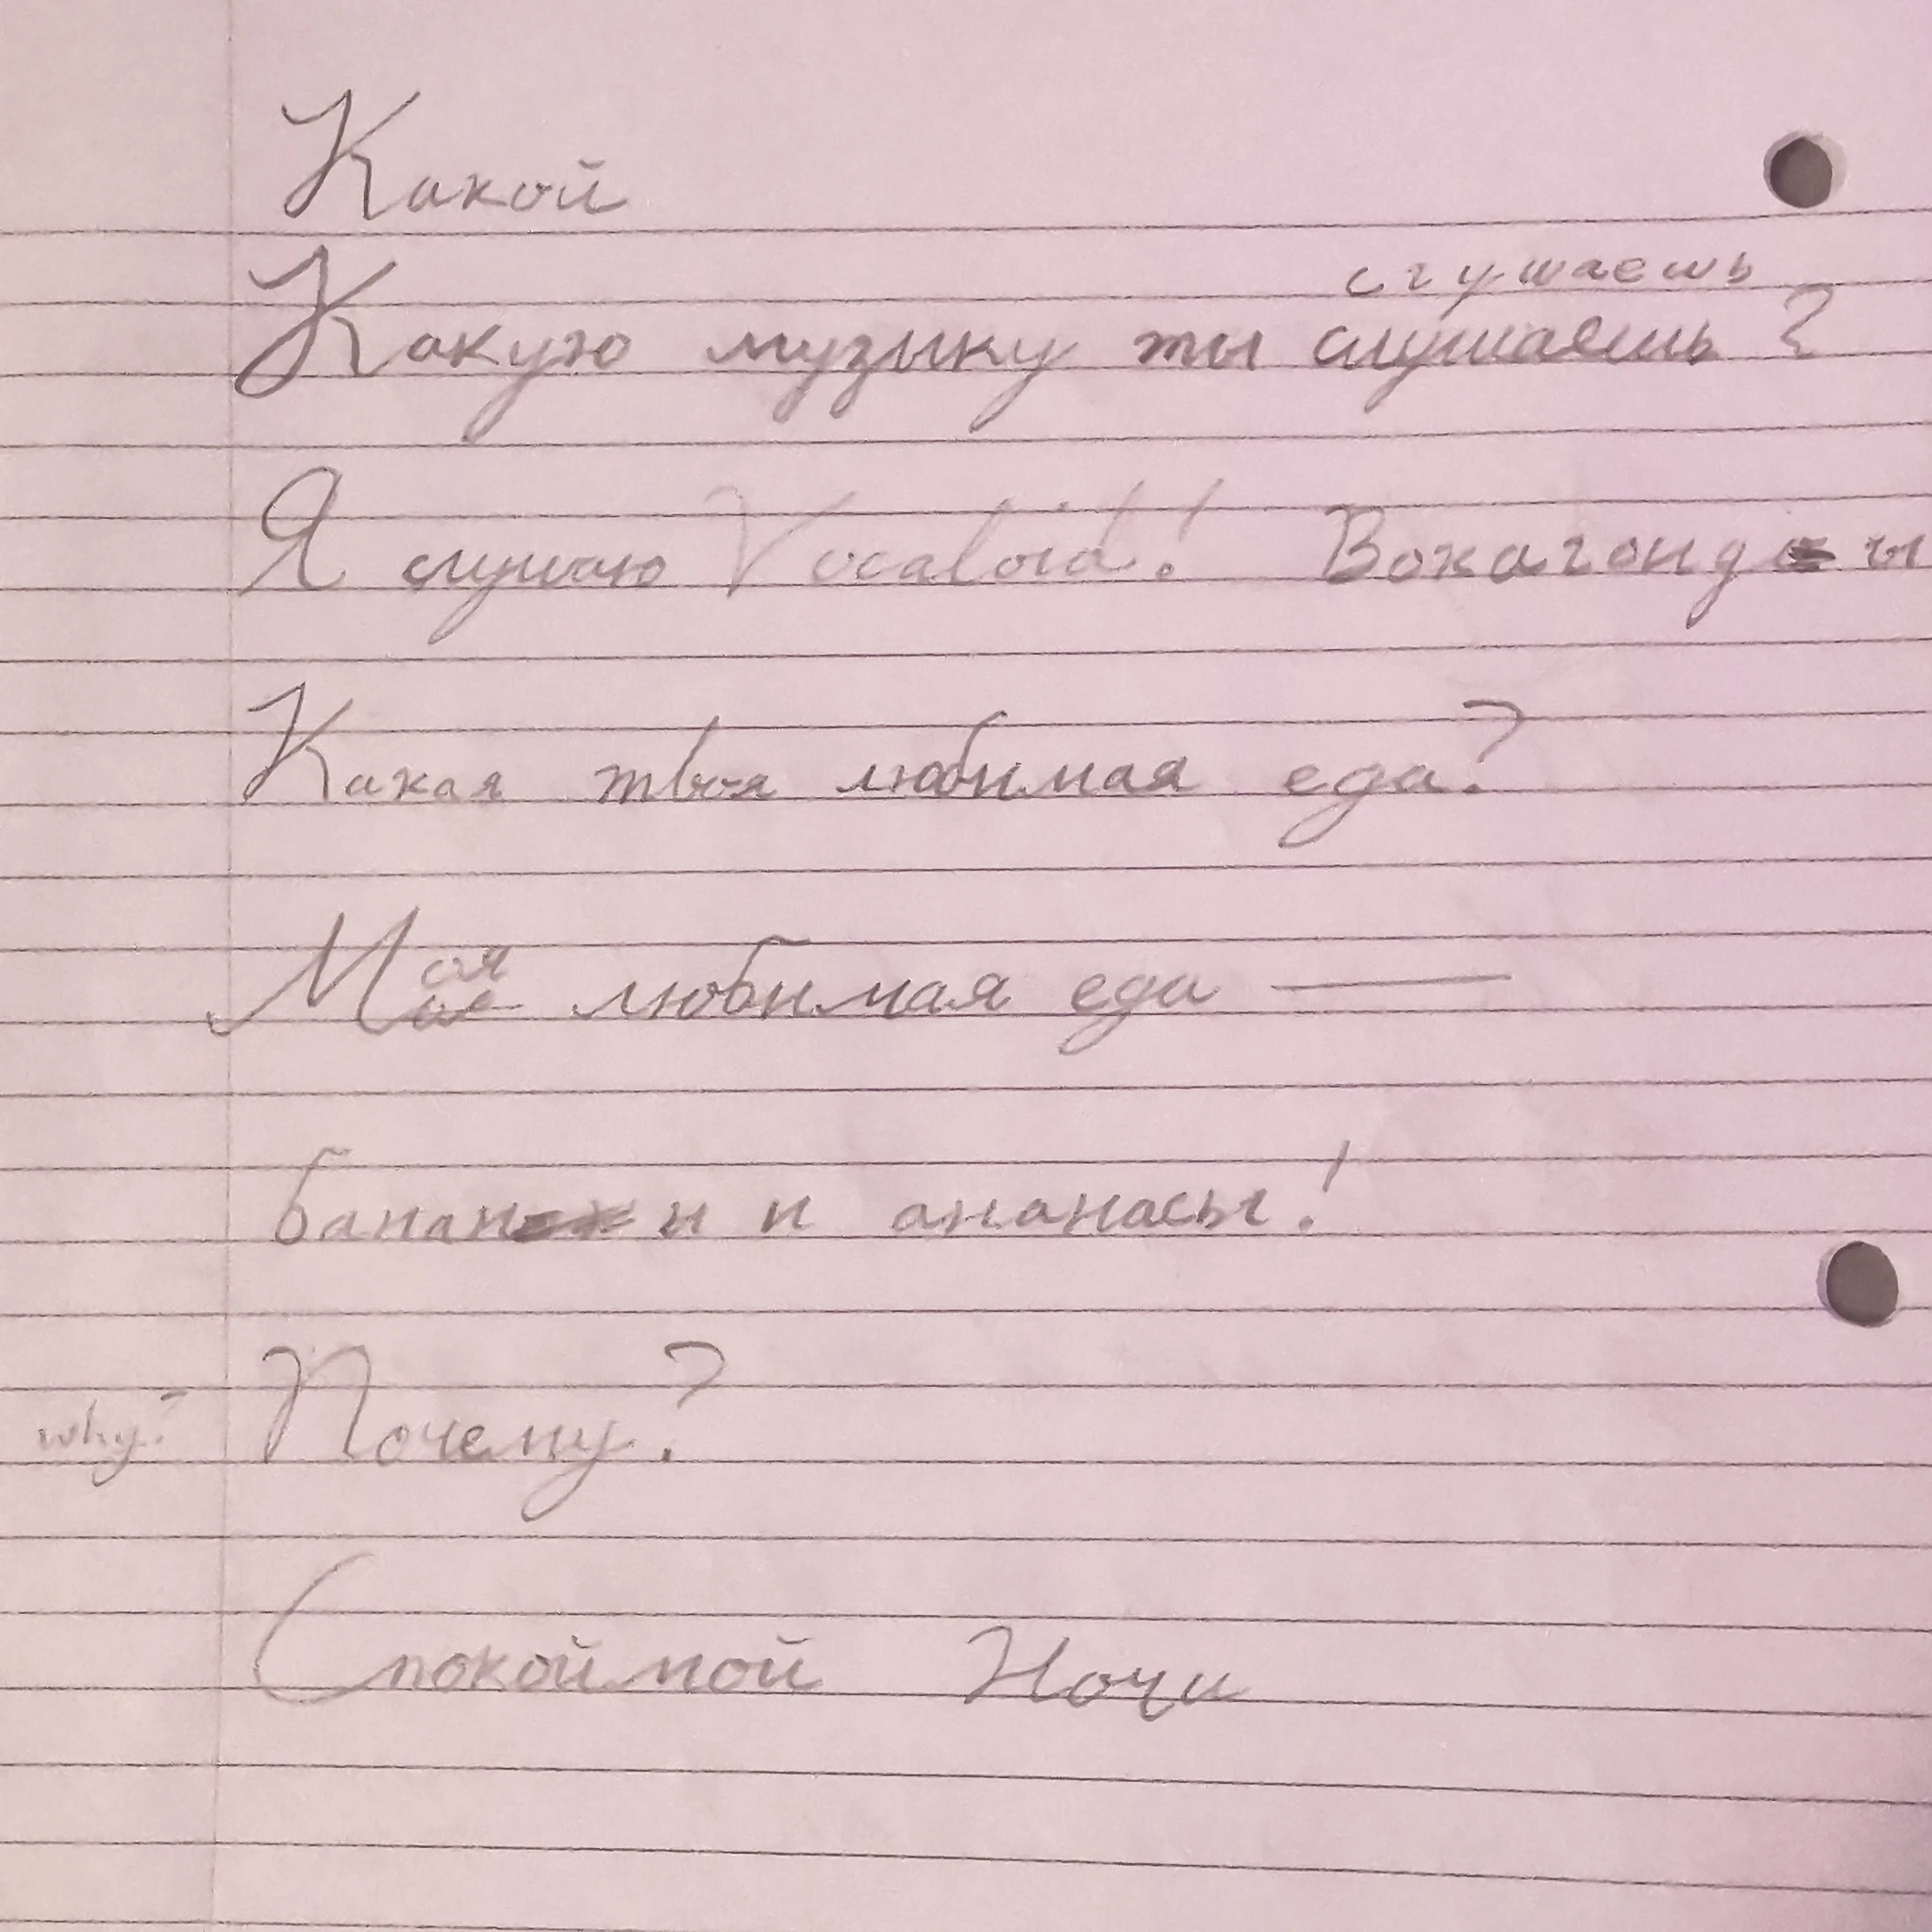 Какой
слушаешь
Какую музыку ты слушаешь?
Я слушаю Vocaloid! Вокалоиды
Какая твоя любимая еда?
Моя любимая еда —
бананы и ананасы!
why? Почему?
Спокойной Ночи